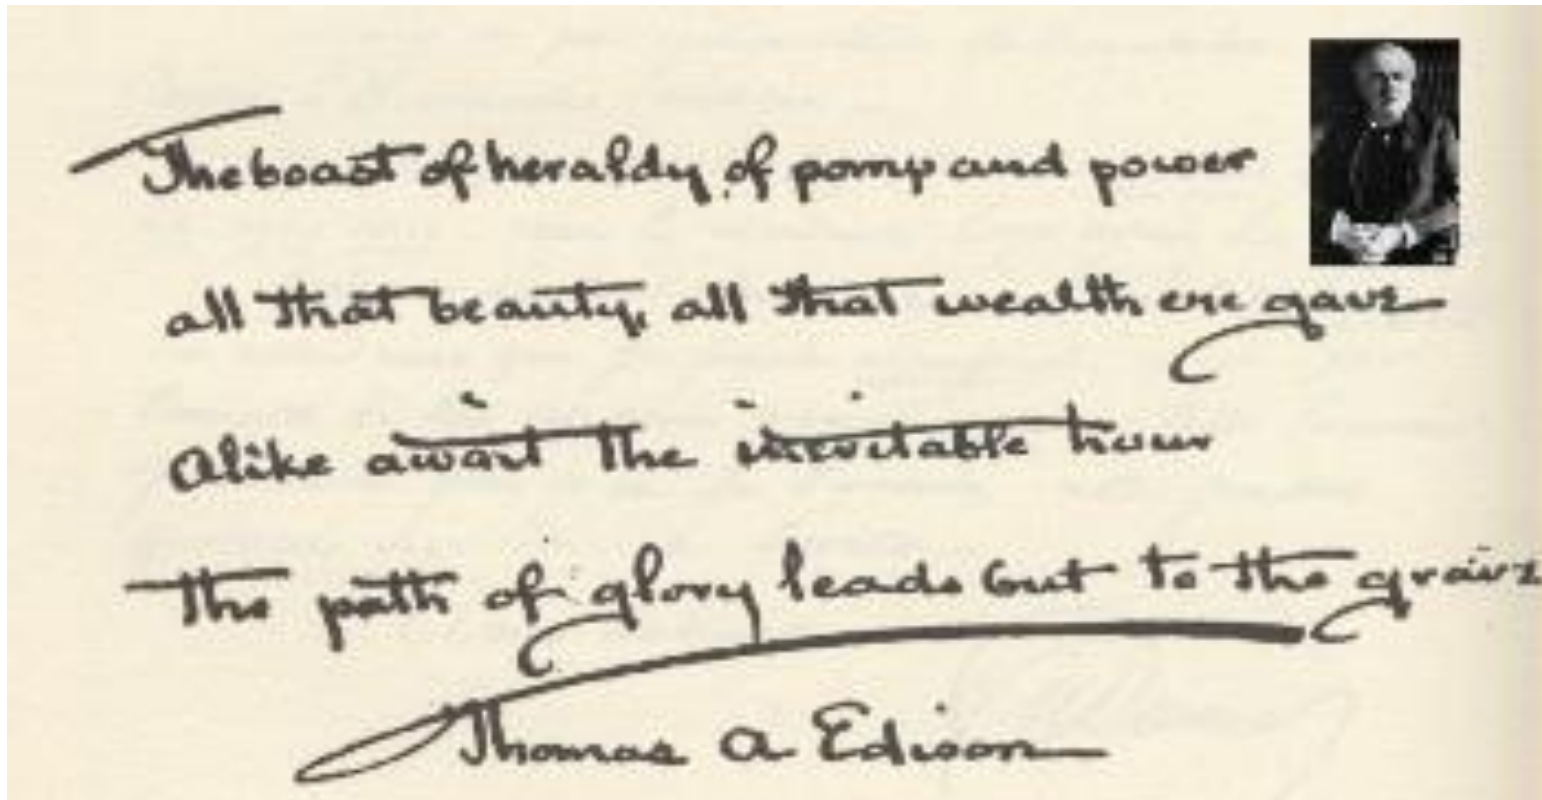 The boast of heraldy of pomp and power
all that beauty, all that wealth ere gave
Alike await the inevitable hour
The path of glory leads but to the grave
Thomas A Edison